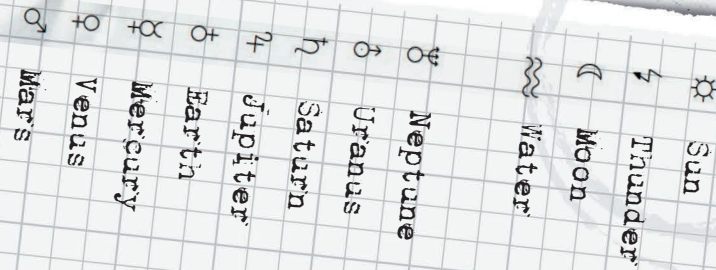 ☼ Sun
Thunder
☽ Moon
Water
♆ Neptune
♅ Uranus
♄ Saturn
♃ Jupiter
♁ Earth
☿ Mercury
♀ Venus
♂ Mars